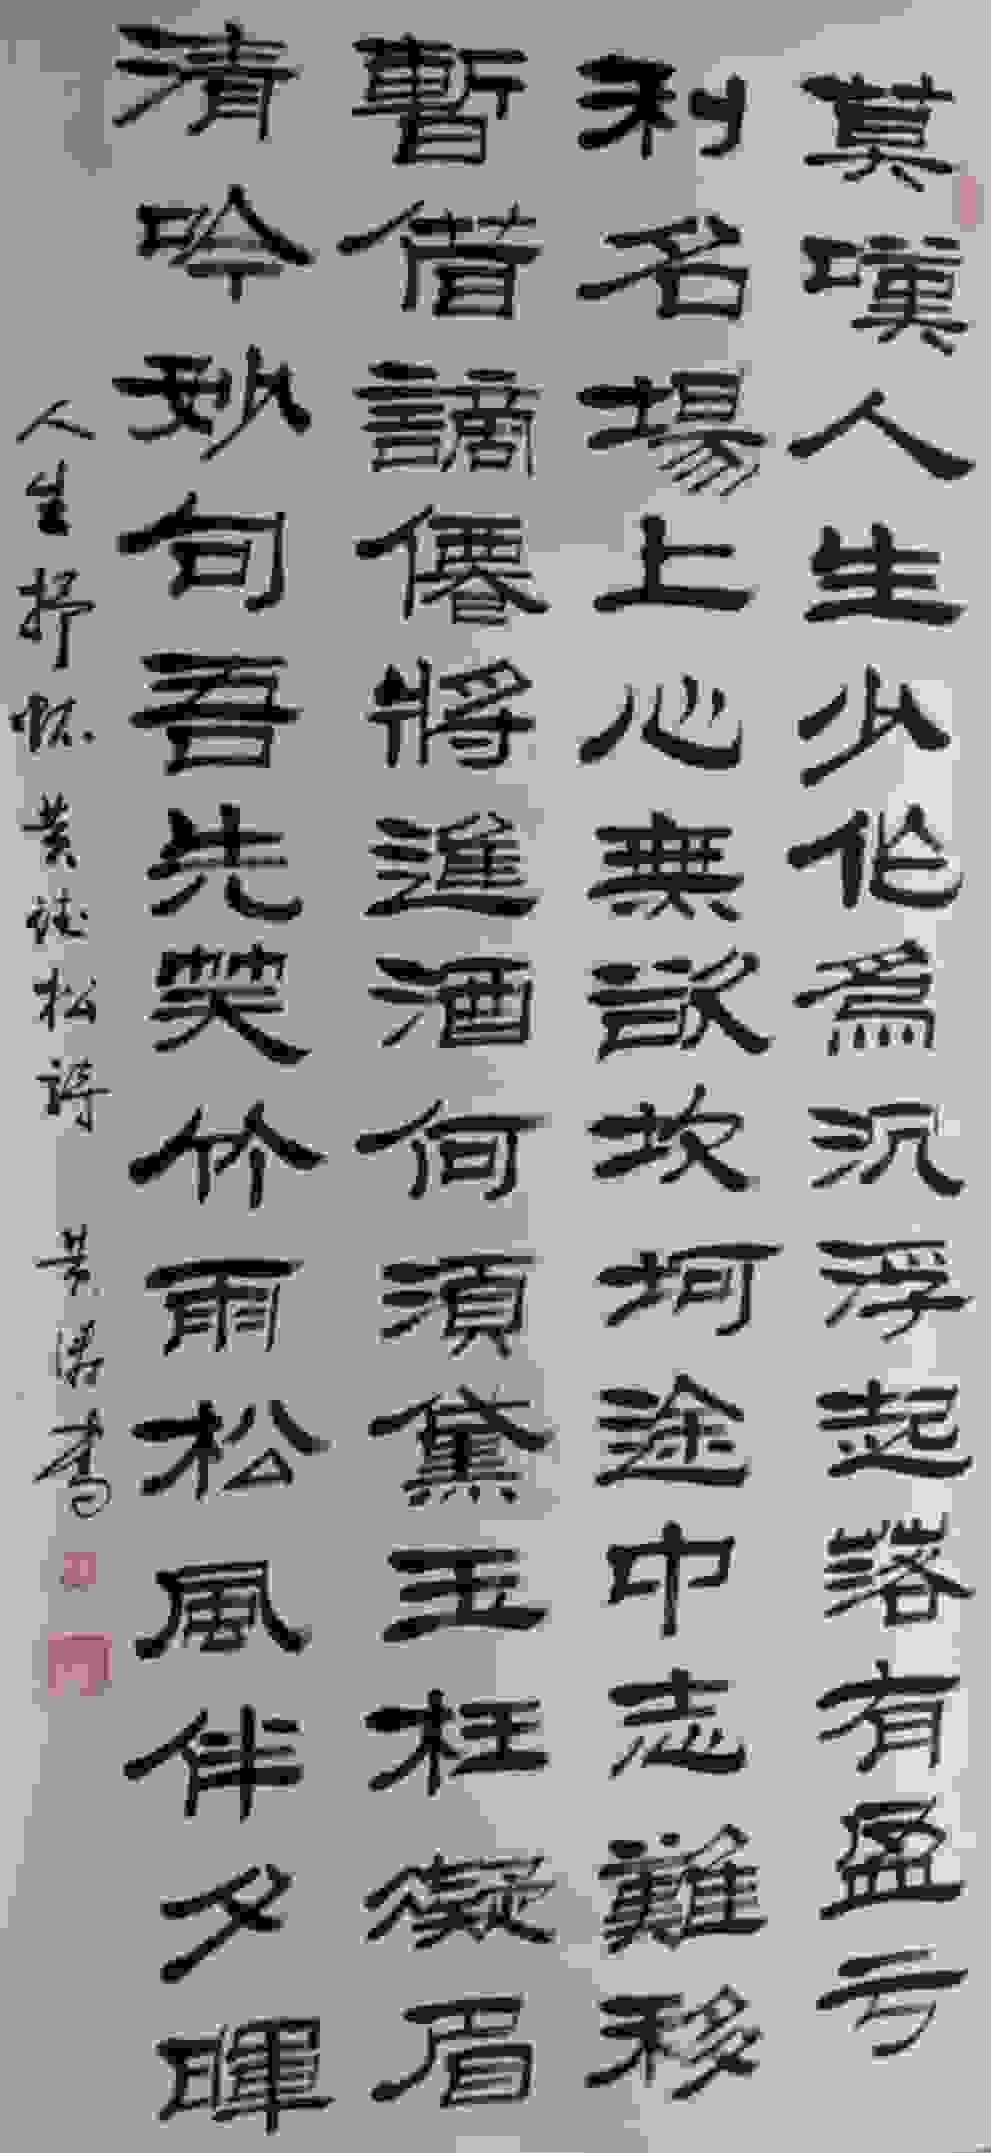 莫嘆人生少作為沉浮起落有盈亏
利名場上心無欲坎坷途中志難移
暫借謫僊將進酒何須黛玉枉凝眉
清吟妙句吾先笑竹雨松風伴夕暉
人生抒怀 黄松詩 黄書